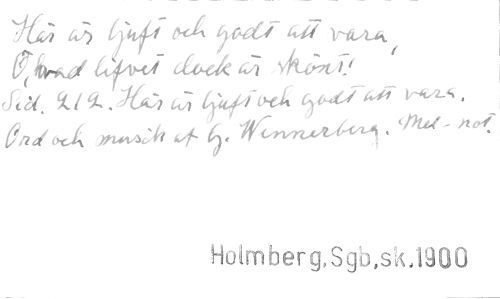 Här är ljuft och godt att vara,
O, hvad lifvet dock är skönt!
Sid. 212. Här är ljuft och godt att vara.
Ord och musik af G. Wennerberg. Mel-not.
Holmberg,Sgb,sk.1900